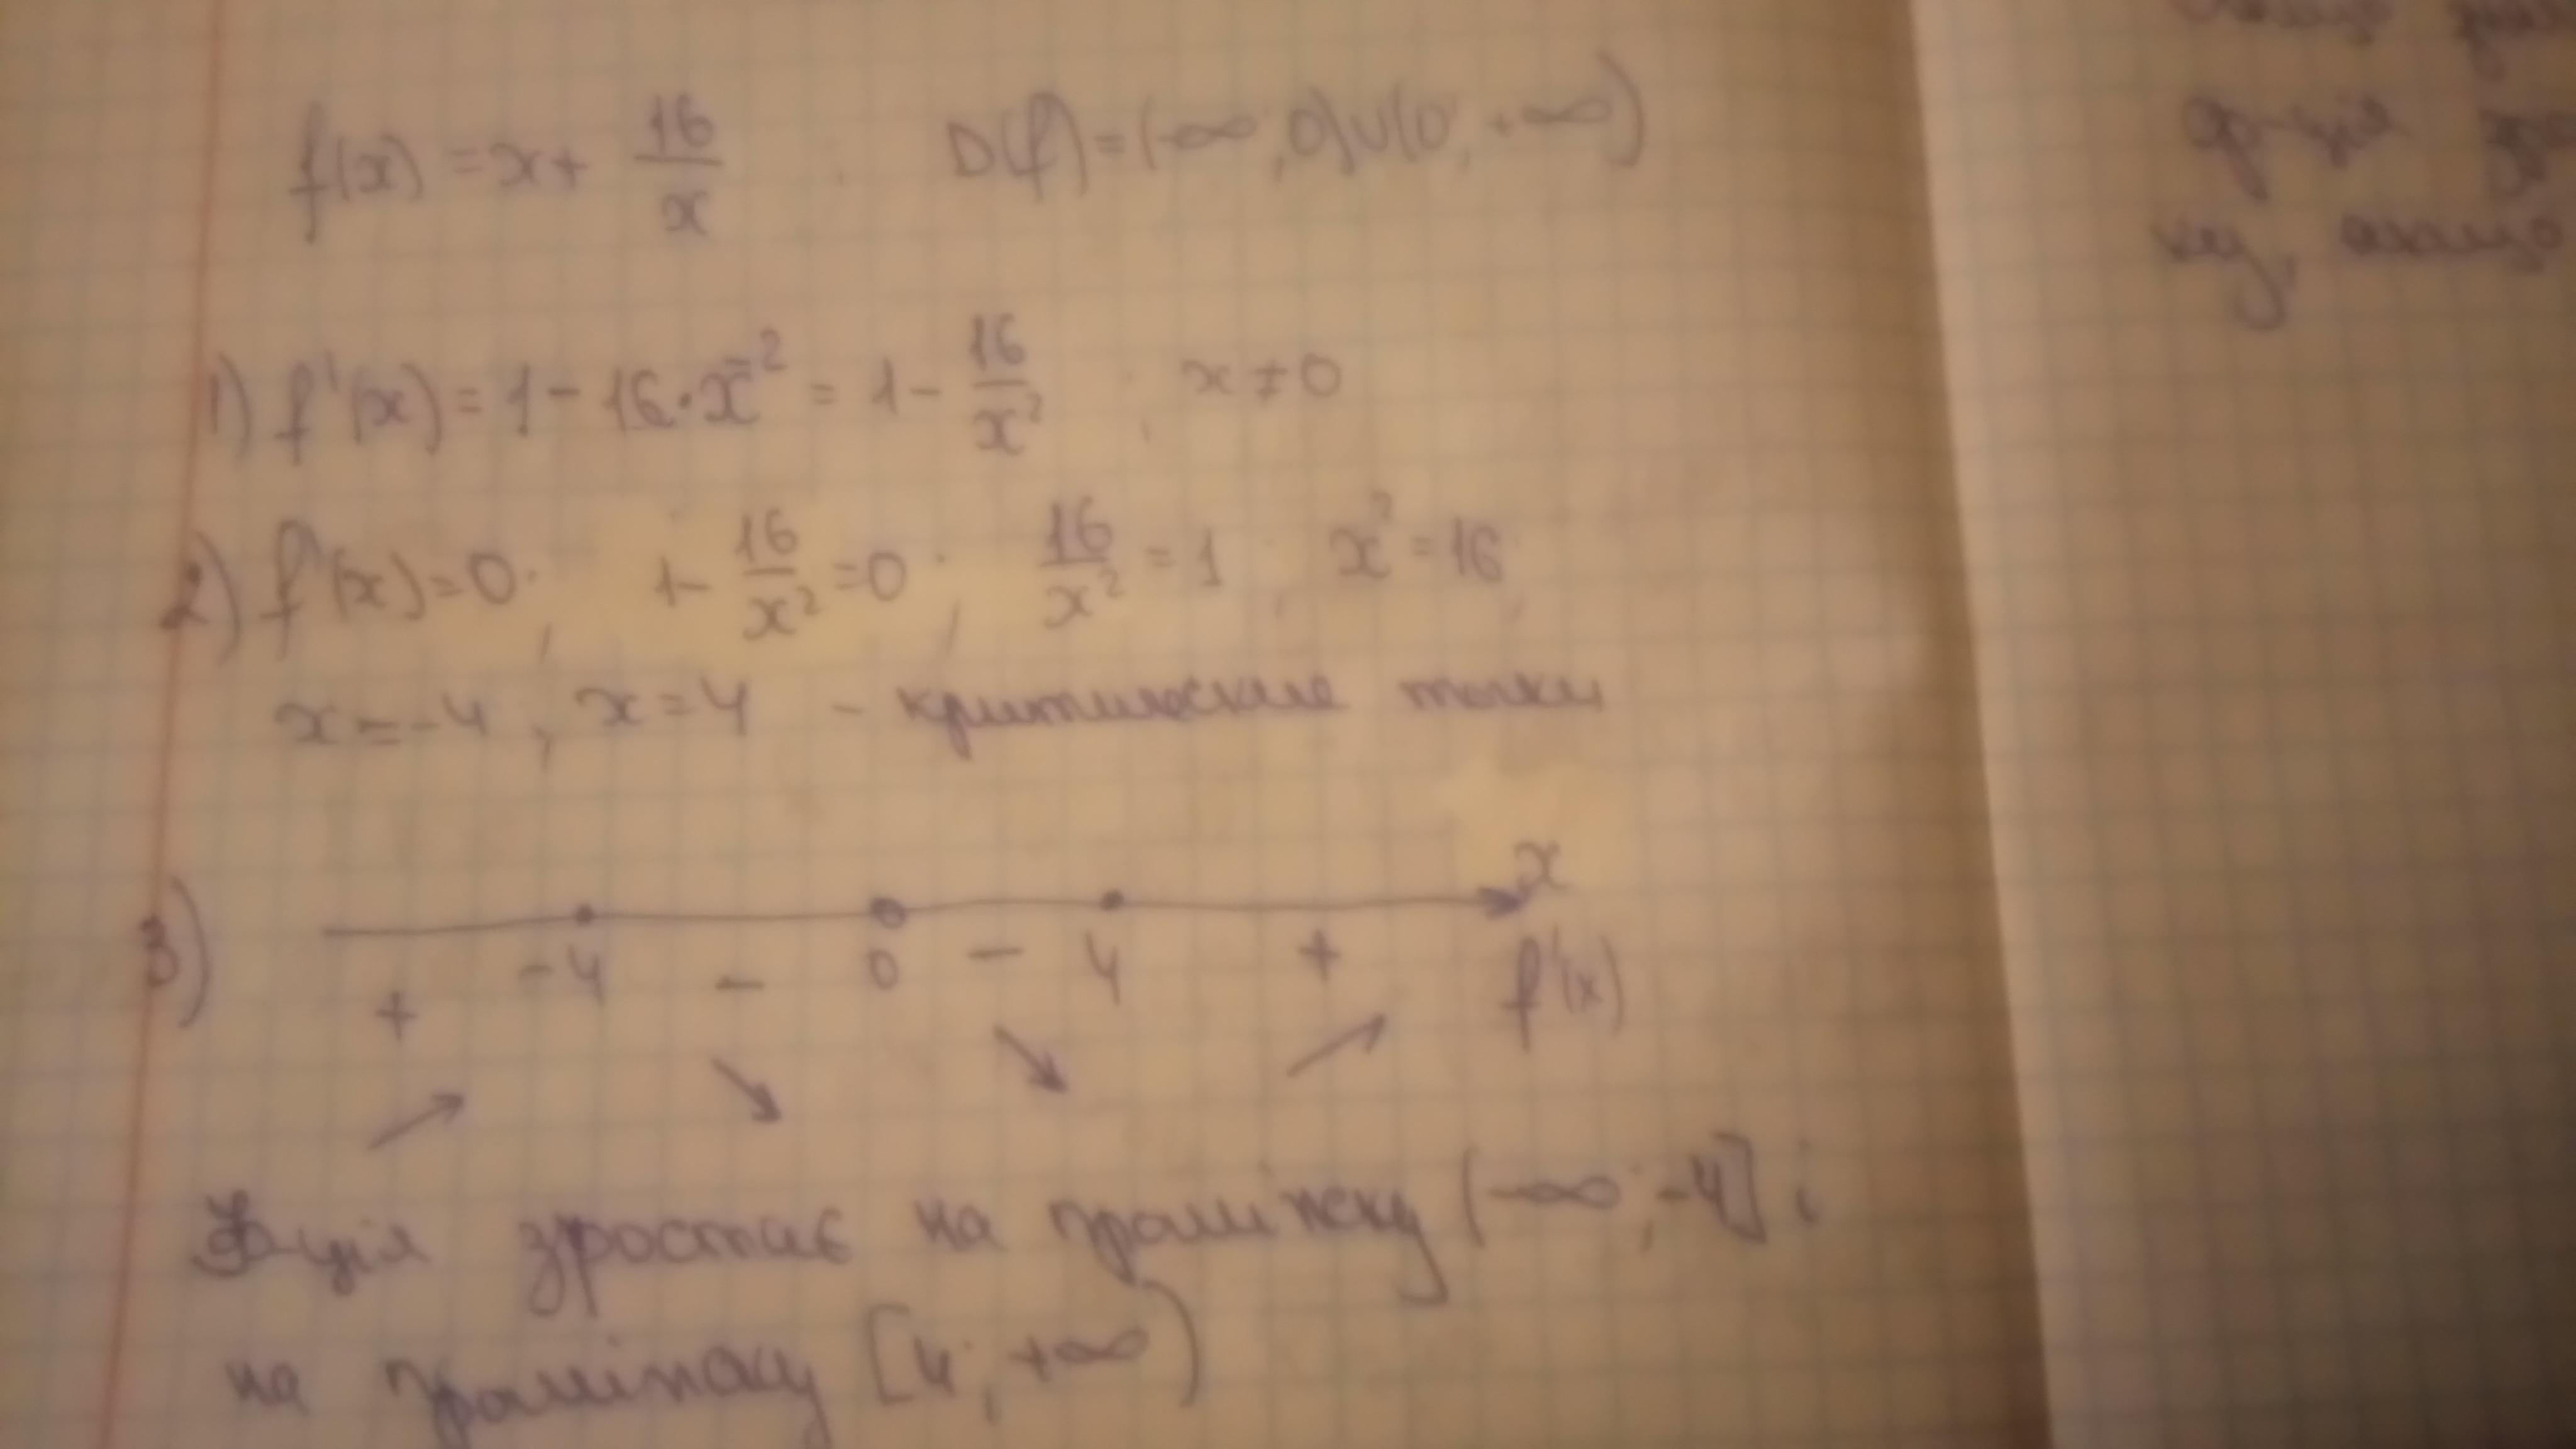 f(x) = x + 16/x ; D(f) = (-∞; 0) ∪ (0; +∞)
1) f'(x) = 1 - 16·x⁻² = 1 - 16/x² ; x ≠ 0
2) f'(x) = 0 ; 1 - 16/x² = 0 ; 16/x² = 1 ; x² = 16 ;
x = -4 ; x = 4 - критические точки
3) x
-4 0 4
+ - - + f'(x)
↗ ↘ ↘ ↗
Ф-ція зростає на проміжку (-∞; -4] і
на проміжку [4; +∞)
ф-ція
ку, якщо